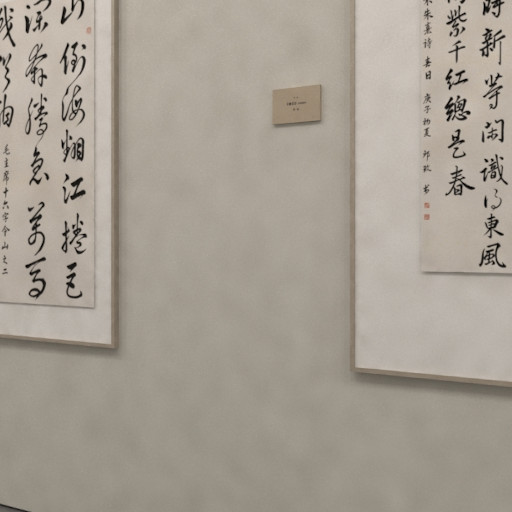 山倒海翻江捲巨
瀾奔騰急萬馬
戰猶酣
毛主席十六字令山之二
時新等閑識得東風
紫千紅總是春
朱熹詩春日 庚子初夏